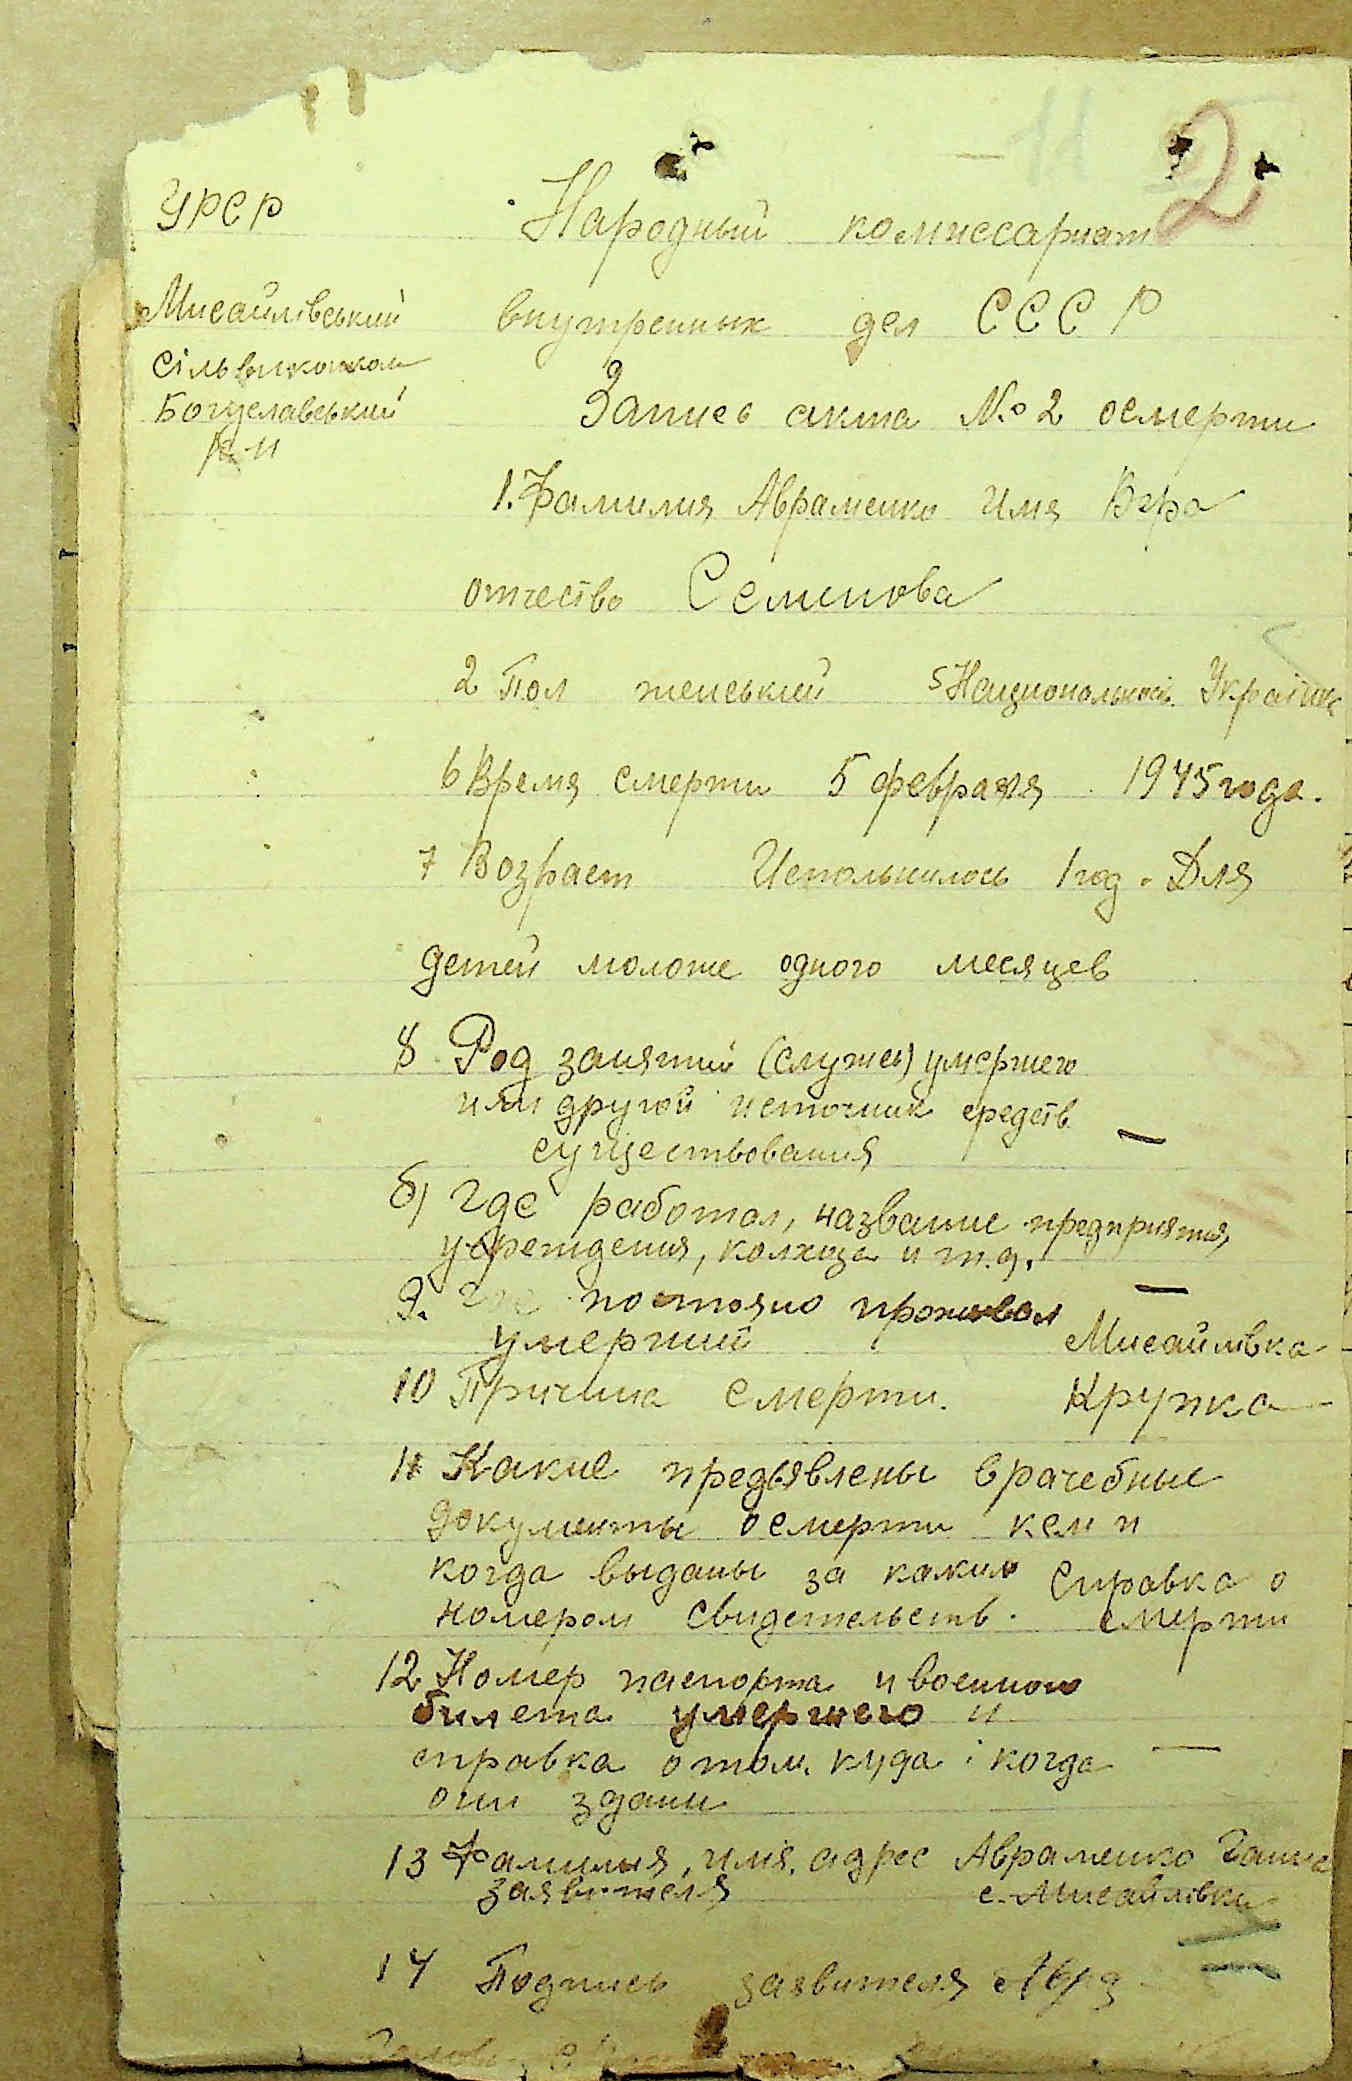 2
УРСР
Народный комиссариат
Мисайлівський
внутренних дел СССР
сільвиконком
Богуславський
р-н
Запись акта № 2 осмерти
1. Фамилия Авраменко Имя Вера
отчество Семинова
2 Пол женський 5 Национальность Українк
6 Время смерти 5 февраля 1945 года.
7 Возраст Испольнилось 1 год. Для
детей моложе одного месяцев
8 Род занятий (служб) умершего
или другой источник средств
существования —
б) где работал, название предприятия,
учреждения, колхоза и т.д. —
9. Где постояно проживал
умерший Мисайлівка
10 Причина смерти. Крупка
11 Какие предьявлены врачебные
документы осмерти кем и
когда выданы за каким Справка о
номером свидетельств. смерти
12 Номер паспорта и военного
билета умершего и
справка о том, куда і когда —
они здани
13 Фамилия, имя, адрес Авраменко Ганна
заявителя с. Мисайлівки
14 Подпись заявителя Авра